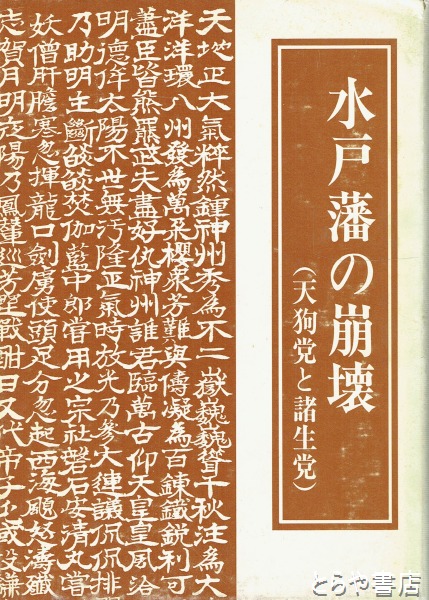 水戸藩の崩壊
(天狗党と諸生党)
天地正大氣粹然鍾神州秀為不二嶽巍巍聳千秋注為大
洋洋環八州發為萬朶櫻衆芳難與儔凝為百錬鐵鋭利可
藎臣皆熊羆武夫盡好仇神州誰君臨萬古仰天皇皇風洽
明德侔太陽不世無汚隆正氣時放光乃參大連議侃侃排
乃助明主斷焔焔焚伽藍中郎嘗用之宗社磐石安清丸嘗
妖僧肝膽寒忽揮龍口劍虜使頭足分忽起西海颶怒濤殲
志賀月明夜陽乃鳳輦巡芳埜戰酣日又代帝子屯或投
とらや書店